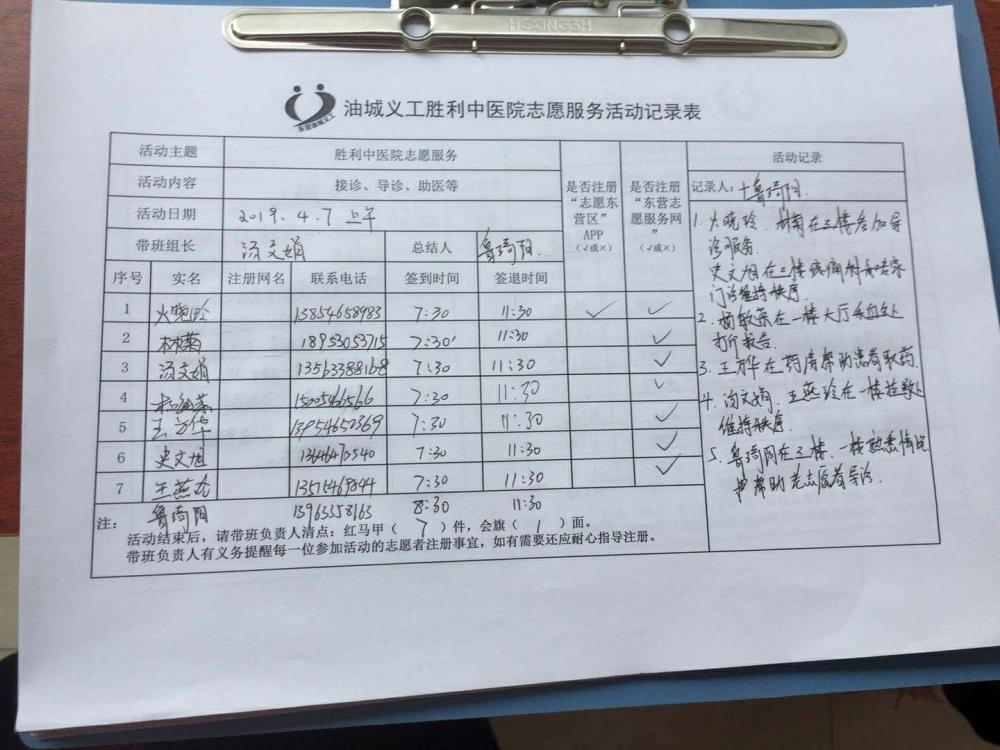 HEXINGSH
东营油城义工
油城义工胜利中医院志愿服务活动记录表
活动主题 胜利中医院志愿服务
活动内容 接诊、导诊、助医等
活动日期 2019.4.7 上午
带班组长 汤文娟 总结人 鲁琦阳
是否注册“志愿东营区”APP（√或×）
是否注册“东营志愿服务网”（√或×）
活动记录
序号 实名 注册网名 联系电话 签到时间 签退时间
1 火晓玲 13854658983 7:30 11:30 √ √
2 林菊 18953053715 7:30 11:30 √
3 汤文娟 13563388168 7:30 11:30 √
4 7:30 11:30 √
5 王万华 13954650369 7:30 11:30 √
6 史文旭 7:30 11:30 √
7 王燕 7:30 11:30 √
鲁琦阳 13963358163 8:30 11:30
注：
活动结束后，请带班负责人清点：红马甲（ 7 ）件，会旗（ 1 ）面。
带班负责人有义务提醒每一位参加活动的志愿者注册事宜，如有需要还应耐心指导注册。
记录人：鲁琦阳
1. 火晓玲、林菊在三楼参加导
诊服务.
史文旭在二楼疼痛科
门诊维持秩序.
2. 杨敏 在一楼大厅
打印报告.
3. 王万华在药房帮助患者取药.
4. 汤文娟、王燕玲在一楼挂号处
维持秩序.
5. 鲁琦阳在三楼、一楼熟悉情况
帮助老志愿者导诊.